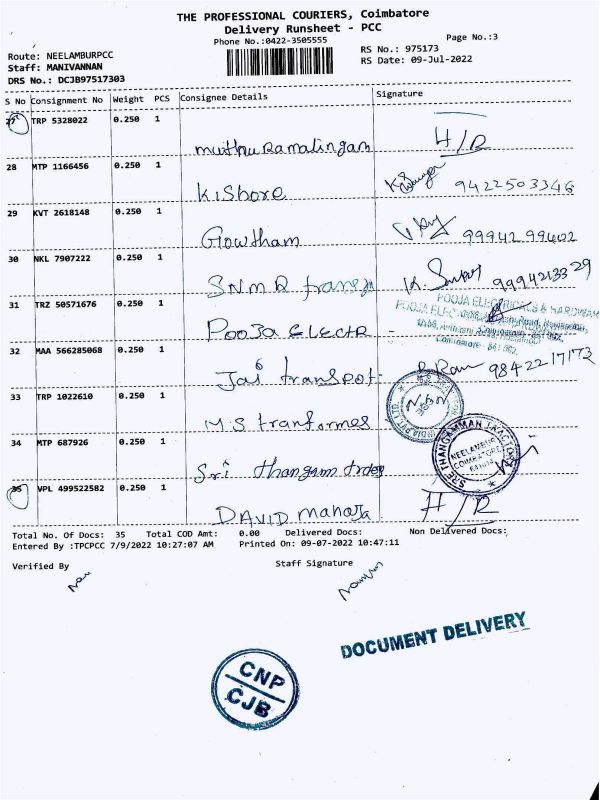 THE PROFESSIONAL COURIERS, Coimbatore
Delivery Runsheet - PCC
Phone No.:0422-3505555
Page No.:3
Route: NEELAMBURPCC
RS No.: 975173
Staff: MANIVANNAN
RS Date: 09-Jul-2022
DRS No.: DCJB97517303
S No Consignment No Weight PCS Consignee Details Signature
27 TRP 5328022 0.250 1
Muthu Ramalingam H/R
28 MTP 1166456 0.250 1
Kishore 9422503346
29 KVT 2618148 0.250 1
Gowtham 99942 99402
30 NKL 7907222 0.250 1
SNMR 9994213329
31 TRZ 50571676 0.250 1
POOJA ELECTR -
POOJA ELECTRICALS & HARDWARE
32 MAA 566285068 0.250 1
Jai transpot- 9842217173
33 TRP 1022610 0.250 1
M.S tranformes
34 MTP 687926 0.250 1
Sri thangam
SREE THANGAMMAN TRACTORS
NEELAMBUR
COIMBATORE
35 VPL 499522582 0.250 1
DAVID Manoja H/R
Total No. Of Docs: 35 Total COD Amt: 0.00 Delivered Docs: Non Delivered Docs:
Entered By :TPCPCC 7/9/2022 10:27:07 AM Printed On: 09-07-2022 10:47:11
Verified By Staff Signature
DOCUMENT DELIVERY
CNP
CJB